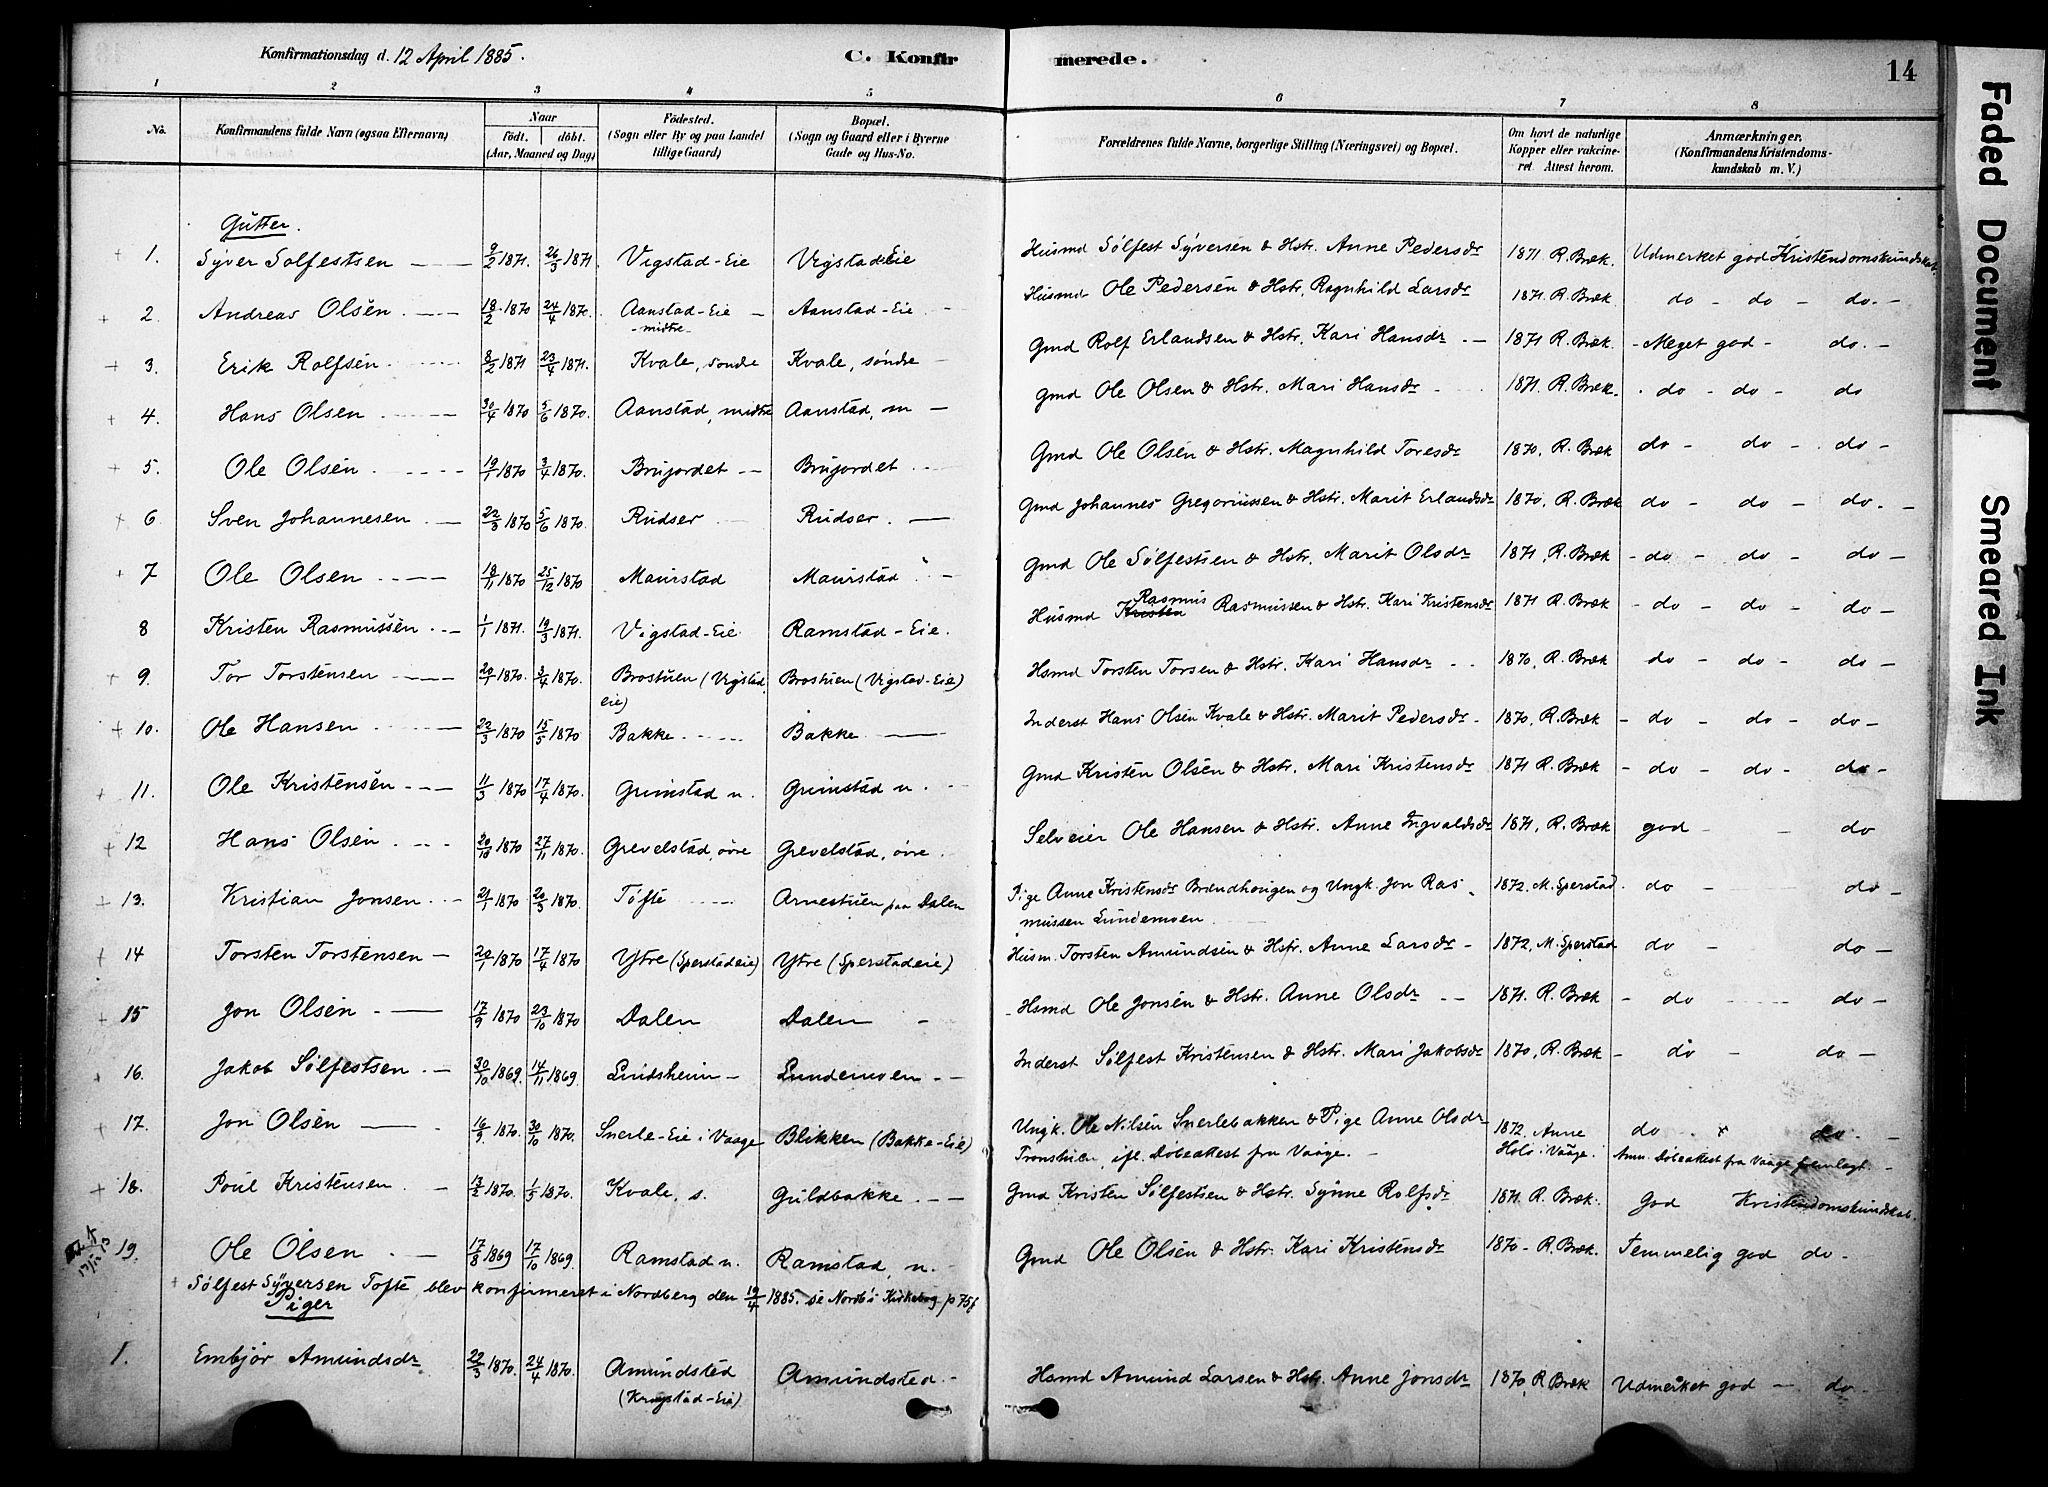 Konfirmationsdag d. 12 April 1885.
C. Konfirmerede.
14
1 2 3 4 5 6 7 8
No. Konfirmandens fulde Navn (ogsaa Efternavn) Naar født. døbt. (Aar, Maaned og Dag) Fødested. (Sogn eller By og paa Landet tillige Gaard) Bopæl. (Sogn og Gaard eller i Byerne Gade og Hus-No. Forældrenes fulde Navne, borgerlige Stilling (Næringsvei) og Bopæl. Om havt de naturlige Kopper eller vakcineret. Attest herom. Anmærkninger. (Konfirmandens Kristendomskundskab m. V.)
Gutter.
1. Syver Solfestsen 9/2 1871 26/3 1871. Vigstad-Eie Vigstad Eie Husmd Sølfest Syversen & Hstr. Anne Pedersdr 1871 R. Bræk. Udmerket god Kristendomskundskab.
2 Andreas Olsen 18/2 1870 24/4 1870. Aanstad-Eie -midtre- Aanstad-Eie Husmd Ole Pedersen & Hstr. Ragnhild Larsdr 1871. R. Bræk do - do - do. -
3. Erik Rolfsen 8/2 1871 23/4 1871. Kvale, søndre Kvale, søndre Gmd Rolf Erlandsen & Hstr. Kari Hansdr. - 1871 R. Bræk. - Meget god - do. -
4. Hans Olsen 30/4 1870 5/6 1870. Aanstad, midtre Aanstad, m - Gmd Ole Olsen & Hstr. Mari Hansdr 1871. R. Bræk. do - do - do
5. Ole Olsen 19/1 1870 3/4 1870. Brujordet Brujordet Gmd Ole Olsen & Hstr. Magnhild Toresdr 1870, R. Bræk do - do - do -
6 Sven Johannesen 22/3 1870 5/6 1870. Rudser Rudser. Gmd Johannes Gregoriussen & Hstr. Marit Erlandsdr 1870, R. Bræk do - do - do. -
7 Ole Olsen 18/11 1870 25/12 1870 Maurstad Maurstad Gmd Ole Sølfestsen & Hstr. Marit Olsdr 1871, R. Bræk - do - do - do -
8 Kristen Rasmussen 1/1 1871. 19/3 1871. Vigstad-Eie Ramstad-Eie. Husmd Kristen Rasmus Rasmussen & Hstr. Kari Kristensdr 1871 R. Bræk - do - do - do -
9. Tor Torstensen 29/1 1870. 3/4 1870. Brostuen (Vigstad eie) Brostuen (Vigstad-Eie) Hsmd Torsten Torsen & Hstr. Kari Hansdr 1870, R. Bræk do - do - do -
10. Ole Hansen 22/3 1870 15/5 1870 Bakke Bakke Inderst Hans Olsen Kvale & Hstr. Marit Pedersdr. 1870, R. Bræk - do - do - do -
11. Ole Kristensen 11/3 1870 17/4 1870. Grimstad n. Grimstad n. Gmd Kristen Olsen & Hstr. Mari Kristensdr 1871 R. Bræk - do - do - do -
12 Hans Olsen 20/10 1870 27/11 1870. Grevelstad, øvre Grevelstad, øvre. Selveier Ole Hansen & Hstr. Anne Ingvaldsdr 1871, R. Bræk god - - do
13. Kristian Jonsen 21/1 1870 20/3 1870. Tofte Arnestuen paa Dalen Pige Anne Kristensdr Brændhougen og Ungk. Jon Rasmussen Lundemoen 1872, M. Sperstad. do - do -
14 Torsten Torstensen 20/1 1870 17/4 1870 Ytre (Sperstadeie) Ytre (Sperstadeie) Husm. Torsten Amundsen & Hstr. Anne Larsdr - 1872, M. Sperstad do - do -
15 Jon Olsen 17/9 1870 23/10 1870 Dalen Dalen Hsmd Ole Jonsen & Hstr. Anne Olsdr 1871. R. Bræk - do do -
16. Jakob Sølfestsen 30/10 1869. 14/11 1869 Lindsheim Lundemoen Inderst Sølfest Kristensen & Hstr. Mari Jakobsdr 1870, R. Bræk - do - do -
17. Jon Olsen 16/9 1870. 30/10 1870. Snerle-Eie i Vaage Blikken (Bakke-Eie) Ungk. Ole Nilsen Snerlebakken & Pige Anne Olsdr Tronstuen, ifl. Døbeattest fra Vaage. 1872. Anne Holø i Vaage. do do. - Anm. Døbeattest fra Vaage fremlagt. -
18. Poul Kristensen 13/2 1870. 1/5 1870. Kvale, s. Guldbakke. Gmd Kristen Sølfestsen & Hstr. Synne Rolfsdr 1871. R. Bræk. God Kristendomskundskab.
19. Ole Olsen 17/8 1869 17/10 1869. Ramstad n. Ramstad, n. Gmd Ole Olsen & Hstr. Kari Kristensdr 1870 - R. Bræk. Temmelig god do -
+ Sølfest Syversen Tofte blev konfirmeret i Nordberg den 19/4 1885. se Nordb's Kirkebog p 75b
Piger
1. Embjør Amundsdr 22/3 1870. 24/4 1870. Amundsted (Krogstad-Eie) Amundsted. - Hsmd Amund Larsen & Hstr. Anne Jonsdr 1870, R Bræk Udmerket god - do -
Faded Document
Smeared Ink